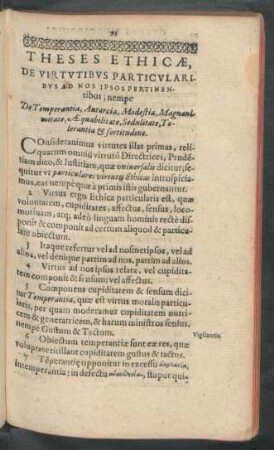 THESES ETHICÆ,
DE VIRTVTIBVS PARTICVLARI-
BVS AD NOS IPSOS PERTINEN-
tibus; nempe
De Temperantia, Autarcia, Modestia, Magnani-
mitate, Æquabilitate, Sedulitate, To-
lerantia & fortitudine.
COnsideravimus virtutes illas primas, reli-
quarum omniũ virtutũ Directrices, Prudẽ-
tiam dico, & Iustitiam, quæ vniversalis dicitur; se-
quitur vt particulares virtutes Ethicas introspicia-
mus, eas nempe quæ à primis istis gubernantur.
2 Virtus ergò Ethica particularis est, quæ
voluntatem, cupiditates, affectus, sensus, loco-
motivam, atq; adeò linguam hominis rectè dispo-
nit & componit ad certum aliquod & particu-
lare obiectum.
3 Itaque refertur vel ad nosmetipsos, vel ad
alios, vel denique partim ad nos, partim ad alios.
4 Virtus ad nos ipsos relata, vel cupidita-
tem componit & sensium; vel affectus.
5 Componens cupiditatem & sensum dici-
tur Temperantia, quæ est virtus moralis particu-
laris, per quam moderamur cupiditatem nutri-
cem & generatricem, & harum ministros sensus,
nempè Gustum & Tactum.
6 Obiectum temperantiæ sunt ex res, quæ
voluptate titillant cupiditatem gustus & tactus.
7 Tẽperantiæ opponitur in excessu
intemperantia; in defectu stupor qui-
Vigilantia